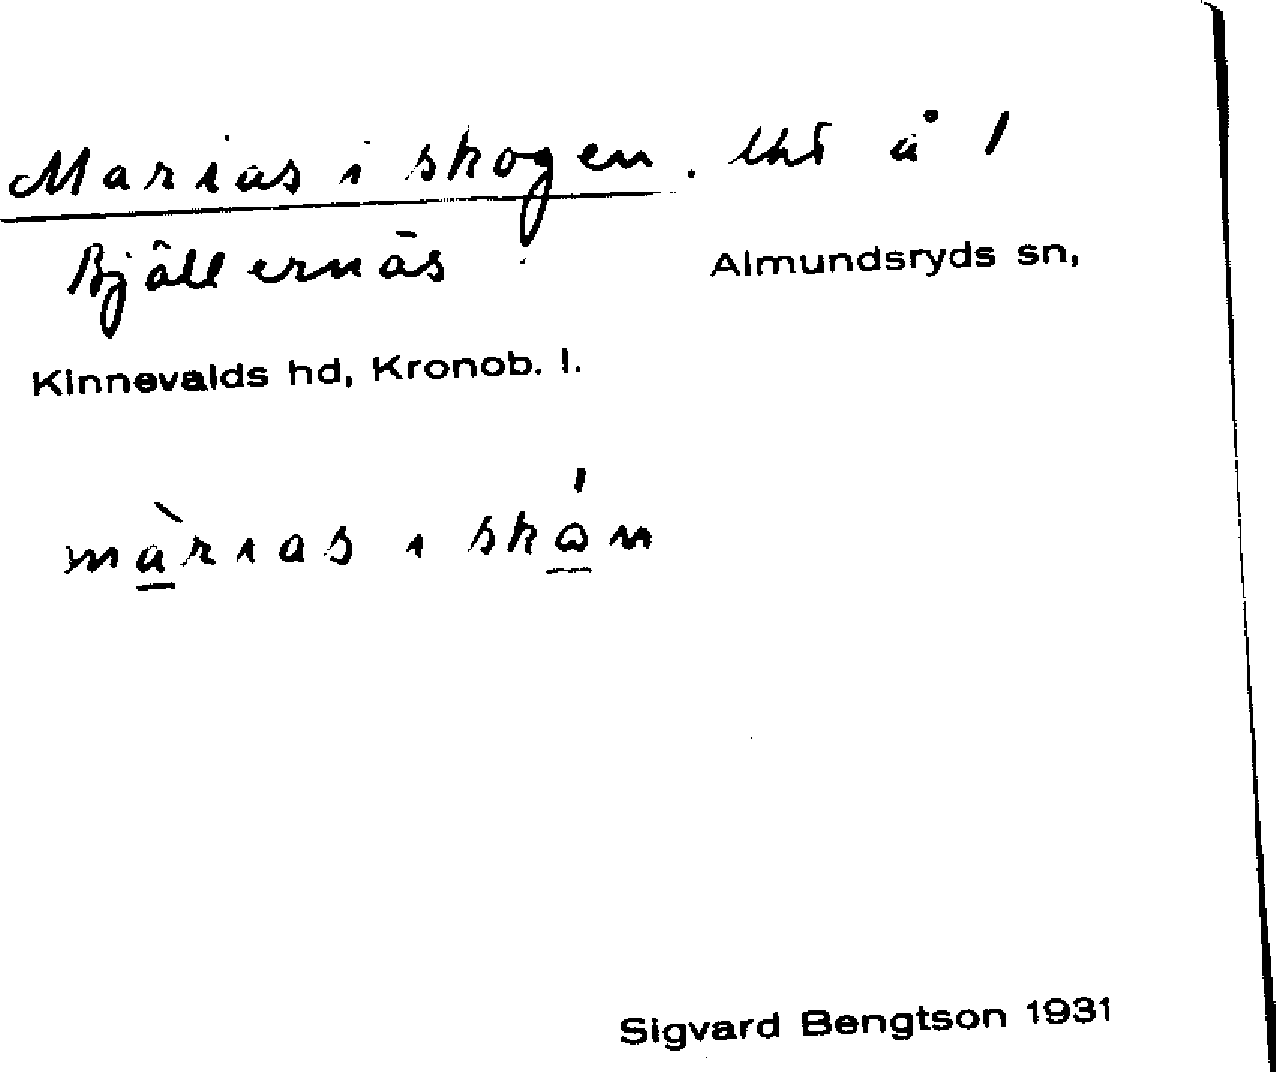 Marias i skogen. lht å 1
Bjällernäs Almundsryds sn,
Kinnevalds hd, Kronob. l.
màrias i skån
Sigvard Bengtson 1931